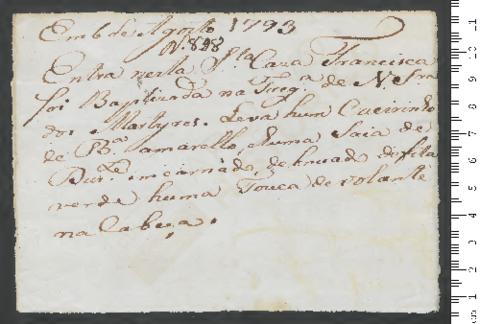 Em 6 de Agosto 1793
N. 898
Entra nesta Sta Caza Francisca
foi Baptizada na Fregª de N. Snrª
dos Martyres. Leva hum Cueirinho
de Bª amarello, huma Saia de
encarnado, de fita
verde huma Touca de volante
na Cabeça.